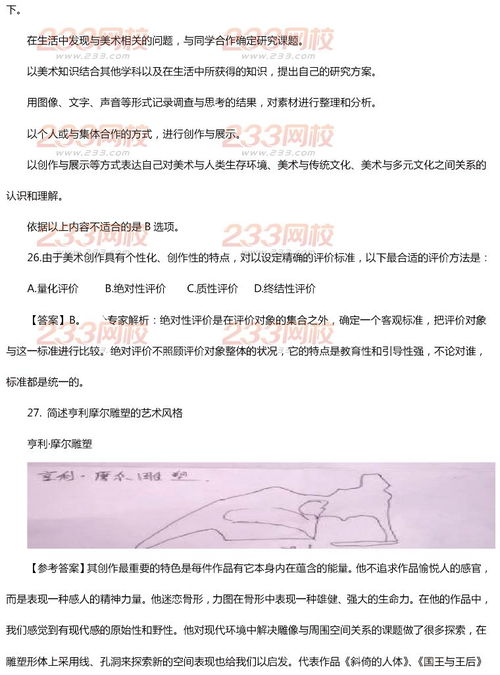 下。
在生活中发现与美术相关的问题，与同学合作确定研究课题。
以美术知识结合其他学科以及在生活中所获得的知识，提出自己的研究方案。
用图像、文字、声音等形式记录调查与思考的结果，对素材进行整理和分析。
以个人或与集体合作的方式，进行创作与展示。
以创作与展示等方式表达自己对美术与人类生存环境、美术与传统文化、美术与多元文化之间关系的
认识和理解。
依据以上内容不适合的是 B 选项。
26.由于美术创作具有个性化、创作性的特点，对以设定精确的评价标准，以下最合适的评价方法是：
A.量化评价 B.绝对性评价 C.质性评价 D.终结性评价
【答案】B。 专家解析：绝对性评价是在评价对象的集合之外，确定一个客观标准，把评价对象
与这一标准进行比较。绝对评价不照顾评价对象整体的状况，它的特点是教育性和引导性强，不论对谁，
标准都是统一的。
27. 简述亨利摩尔雕塑的艺术风格
亨利·摩尔雕塑
亨利·摩尔雕塑
【参考答案】其创作最重要的特色是每件作品有它本身内在蕴含的能量。他不追求作品愉悦人的感官，
而是表现一种感人的精神力量。他迷恋骨形，力图在骨形中表现一种雄健、强大的生命力。在他的作品中，
我们感觉到有现代感的原始性和野性。他对现代环境中解决雕像与周围空间关系的课题做了很多探索，在
雕塑形体上采用线、孔洞来探索新的空间表现也给我们以启发。代表作品《斜倚的人体》、《国王与王后》
233网校
www.233.com
233网校
www.233.com
233网校
www.233.com
233网校
www.233.com
233网校
www.233.com
233网校
www.233.com
233网校
www.233.com
233网校
www.233.com